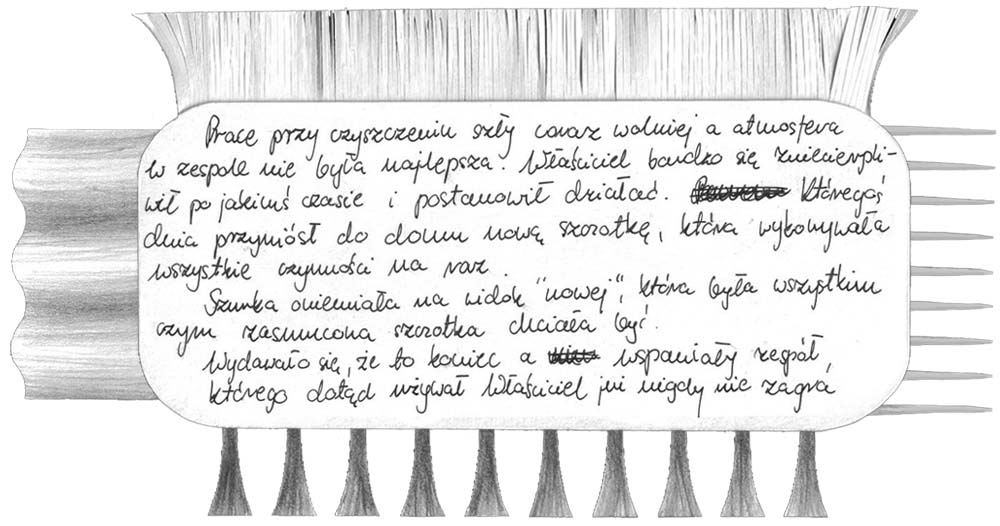 Prace przy czyszczeniu szły coraz wolniej a atmosfera
w zespole nie była najlepsza. Właściciel bardzo się zniecierpli-
wił po jakimś czasie i postanowił działać. któregoś
dnia przyniósł do domu nową szczotkę, która wykonywała
wszystkie czynności na raz.
Szumka oniemiała na widok "nowej", która była wszystkim
czym zasmucona szczotka chciała być.
Wydawało się, że to koniec a wspaniały zespół,
którego dotąd używał Właściciel już nigdy nie zagra